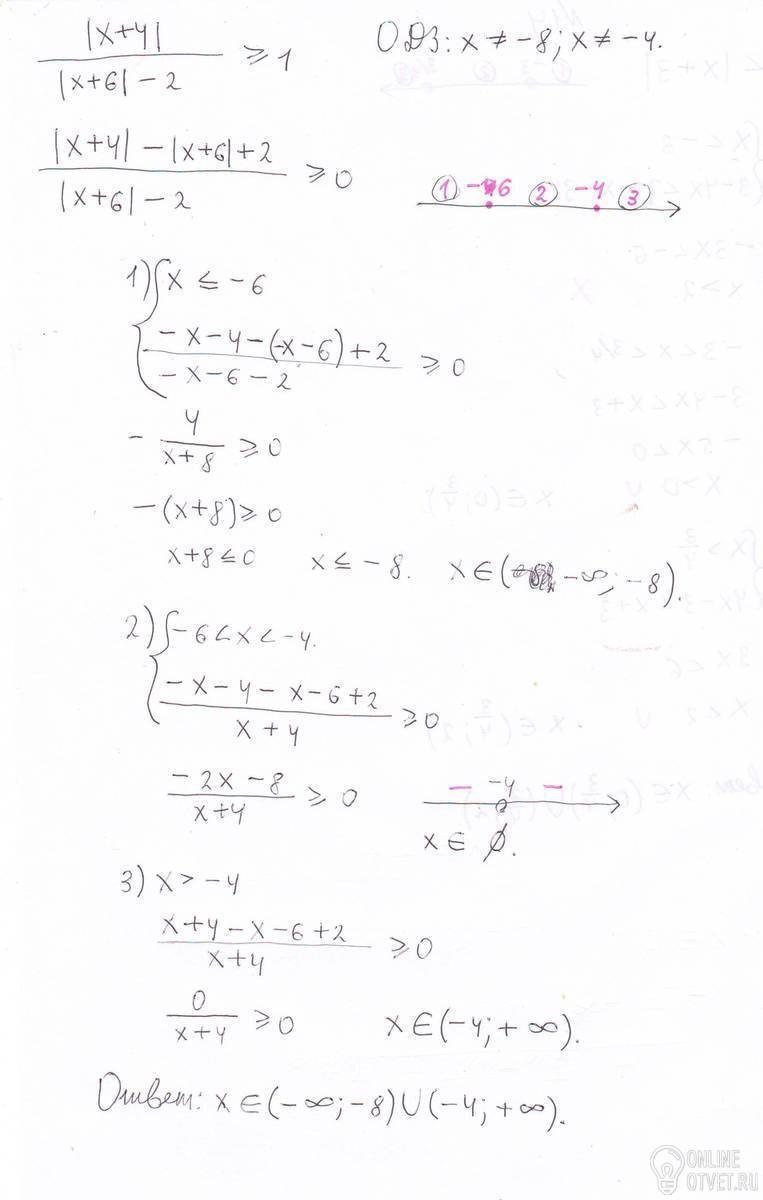 |x+4| / (|x+6| - 2) ⩾ 1 ОДЗ: x ≠ -8; x ≠ -4.
(|x+4| - |x+6| + 2) / (|x+6| - 2) ⩾ 0
① -6 ② -4 ③
1) { x ≤ -6
(-x-4-(-x-6)+2) / (-x-6-2) ⩾ 0
- 4/(x+8) ⩾ 0
-(x+8) ⩾ 0
x+8 ≤ 0 x ≤ -8. x ∈ (-∞; -8).
2) { -6 < x < -4.
(-x-4-x-6+2) / (x+4) ⩾ 0
(-2x-8) / (x+4) ⩾ 0
- -4 -
x ∈ ∅.
3) x > -4
(x+4-x-6+2) / (x+4) ⩾ 0
0/(x+4) ⩾ 0 x ∈ (-4; +∞).
Ответ: x ∈ (-∞; -8) ∪ (-4; +∞).
ONLINE
OTVET.RU